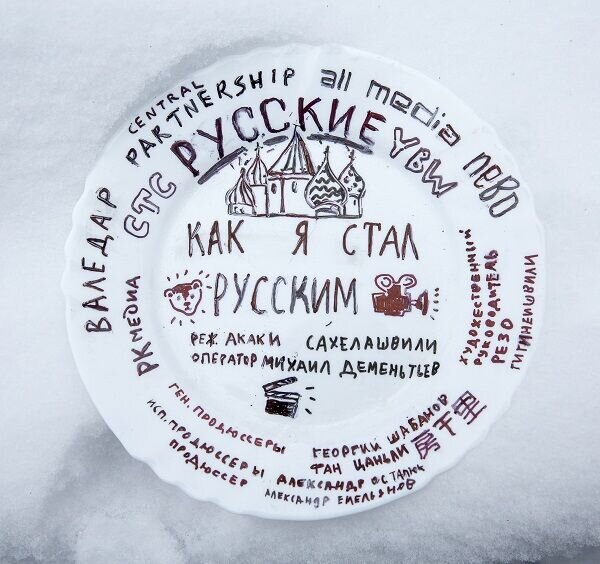 CENTRAL
PARTNERSHIP
all media
РУССКИЕ
YBW
ПЕВО
ВАЛЕДАР
СТС
РК МЕДИА
КАК Я СТАЛ
РУССКИМ
РЕЖ АКАКИ САХЕЛАШВИЛИ
ОПЕРАТОР МИХАИЛ ДЕМЕНТЬЕВ
ХУДОЖЕСТВЕННЫЙ
РУКОВОДИТЕЛЬ
РЕЗО
ГИГИНЕИШВИЛИ
ГЕН. ПРОДЮССЕРЫ ГЕОРГИЙ ШАБАНОВ
ФАН ЦАНЬЛИ 房千里
ИСП. ПРОДЮССЕРЫ АЛЕКСАНДР
ПРОДЮССЕР АЛЕКСАНДР ЕМЕЛЬЯНОВ